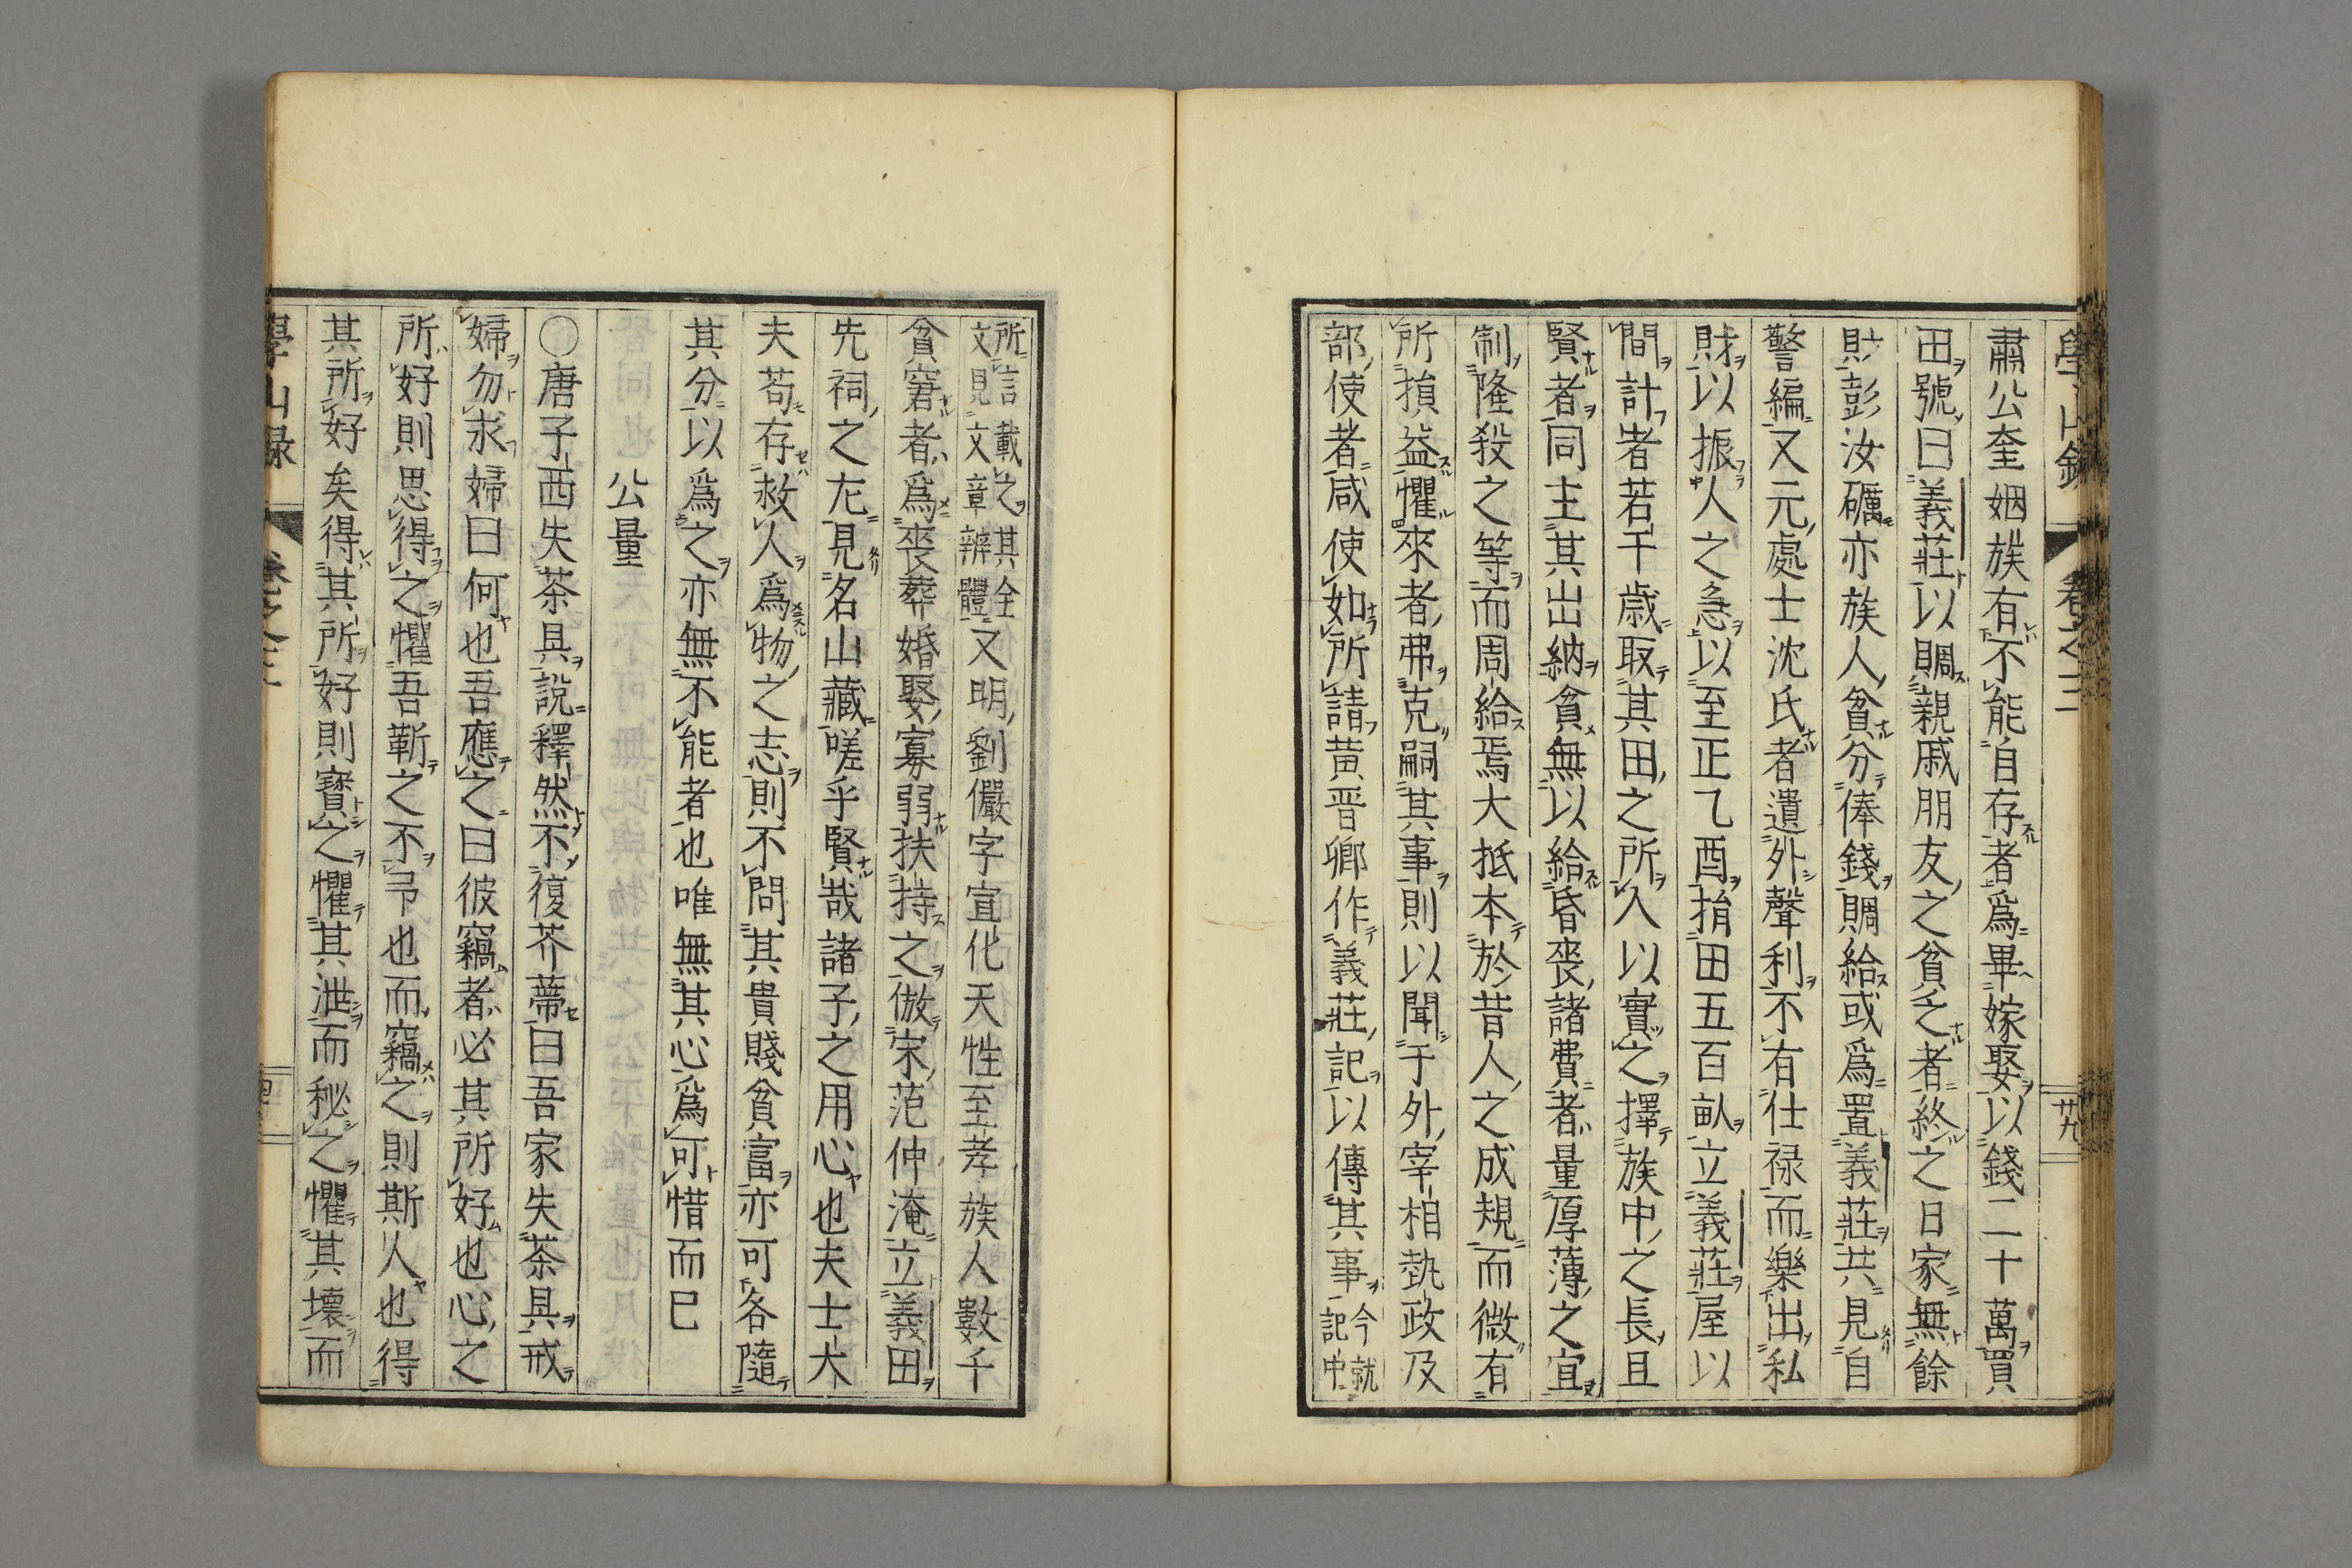 學山錄 卷之三 廿九
肅公奎姻族有不能自存者爲畢嫁娶以錢二十萬買
田號曰義莊以賙親戚朋友之貧乏者終之日家無餘
財彭汝礪亦族人貧分俸錢賙給或爲置義莊共見自
警編又元處士沈氏者遺外聲利不有仕祿而樂出私
財以振人之急以至正乙酉捐田五百畝立義莊屋以
間計者若干歲取其田之所入以實之擇族中之長且
賢者同主其出納貧無以給昏喪諸費者量厚薄之宜
制隆殺之等而周給焉大抵本於昔人之成規而微有
所損益懼來者弗克嗣其事則以聞于外宰相執政及
部使者咸使如所請黃晋卿作義莊記以傳其事今就記中
所言載之其全文見文章辨體又明劉儼字宣化天性至孝族人數千
貧窘者爲喪葬婚娶寡弱扶持之倣宋范仲淹立義田
先祠之左見名山藏嗟乎賢哉諸子之用心也夫士大
夫苟存救人爲物之志則不問其貴賤貧富亦可各隨
其分以爲之亦無不能者也唯無其心爲可惜而已
公量
〇唐子西失茶具說釋然不復芥蔕曰吾家失茶具戒
婦勿求婦曰何也吾應之曰彼竊者必其所好也心之
所好則思得之懼吾靳之不予也而竊之則斯人也得
其所好矣得其所好則寳之懼其泄而秘之懼其壞而
學山録 卷之三